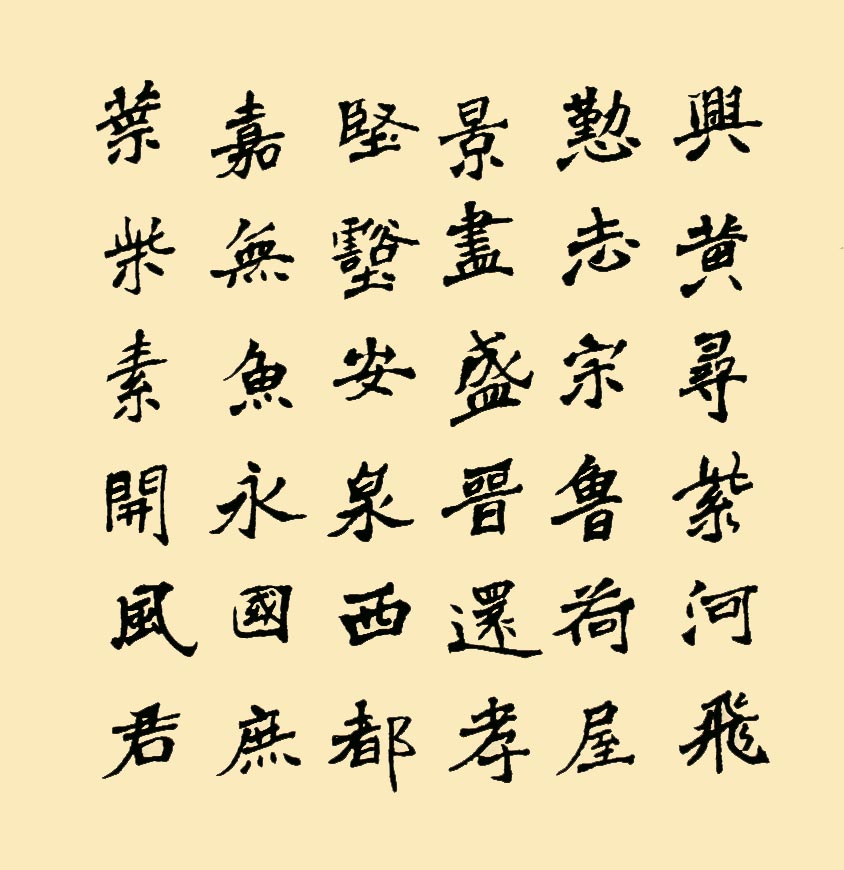 興黄尋紫河飛
懃志宗魯荷屋
景盡盛晉還孝
堅壑安泉西都
嘉無魚永國庶
葉柴素開風君